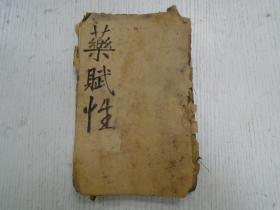 藥賦性